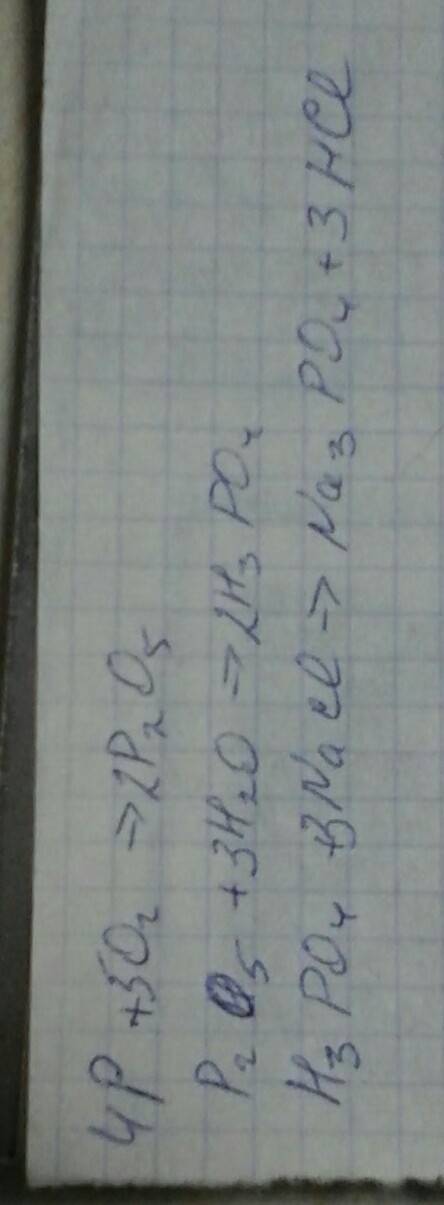 4P + 5O₂ => 2P₂O₅
P₂O₅ + 3H₂O => 2H₃PO₄
H₃PO₄ + 3NaCl => Na₃PO₄ + 3HCl